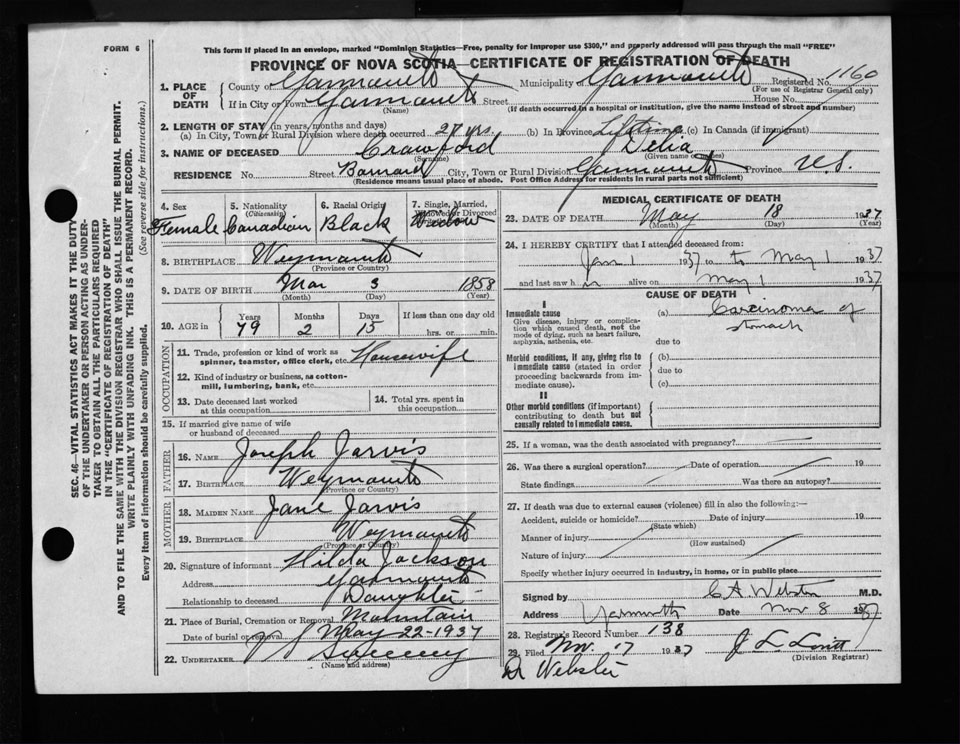 FORM 6
This form if placed in an envelope, marked "Dominion Statistics—Free, penalty for improper use $300," and properly addressed will pass through the mail "FREE"
PROVINCE OF NOVA SCOTIA—CERTIFICATE OF REGISTRATION OF DEATH
1. PLACE OF DEATH
County of Yarmouth Municipality of Yarmouth Registered No. 1160
(For use of Registrar General only)
If in City or Town Yarmouth Street House No.
(Name) (If death occurred in a hospital or institution, give the name instead of street and number)
2. LENGTH OF STAY (in years, months and days)
(a) In City, Town or Rural Division where death occurred 27 yrs. (b) In Province Lifetime (c) In Canada (if immigrant)
3. NAME OF DECEASED Crawford Delia
(Surname) (Given name or names)
RESIDENCE No. Street Barnard City, Town or Rural Division Yarmouth Province N.S.
(Residence means usual place of abode. Post Office Address for residents in rural parts not sufficient)
4. Sex Female
5. Nationality (Citizenship) Canadian
6. Racial Origin Black
7. Single, Married, Widowed or Divorced Widow
8. BIRTHPLACE Weymouth
(Province or Country)
9. DATE OF BIRTH Mar 3 1858
(Month) (Day) (Year)
10. AGE in Years 79 Months 2 Days 15 If less than one day old hrs. or min.
OCCUPATION
11. Trade, profession or kind of work as spinner, teamster, office clerk, etc. Housewife
12. Kind of industry or business, as cotton-mill, lumbering, bank, etc.
13. Date deceased last worked at this occupation
14. Total yrs. spent in this occupation
15. If married give name of wife or husband of deceased
FATHER
16. Name Joseph Jarvis
17. Birthplace Weymouth
(Province or Country)
MOTHER
18. Maiden Name Jane Jarvis
19. Birthplace Weymouth
(Province or Country)
20. Signature of informant Hilda Jackson
Address Yarmouth
Relationship to deceased Daughter
21. Place of Burial, Cremation or Removal Mountain
Date of burial or removal May 22-1937
22. UNDERTAKER Sweeney
(Name and address)
MEDICAL CERTIFICATE OF DEATH
23. DATE OF DEATH May 18 1937
(Month) (Day) (Year)
24. I HEREBY CERTIFY that I attended deceased from:
Jan 1 1937 to May 1 1937
and last saw h alive on May 1 1937
CAUSE OF DEATH
I
Immediate cause
Give disease, injury or complication which caused death, not the mode of dying, such as heart failure, asphyxia, asthenia, etc.
(a) Carcinoma of stomach
due to
Morbid conditions, if any, giving rise to immediate cause (stated in order proceeding backwards from immediate cause).
(b)
due to
(c)
II
Other morbid conditions (if important) contributing to death but not causally related to immediate cause.
25. If a woman, was the death associated with pregnancy?
26. Was there a surgical operation? Date of operation 19
State findings Was there an autopsy?
27. If death was due to external causes (violence) fill in also the following:—
Accident, suicide or homicide? Date of injury 19
(State which)
Manner of injury
(How sustained)
Nature of injury
Specify whether injury occurred in industry, in home, or in public place
Signed by C A Webster M.D.
Address Yarmouth Date Nov 8 1937
28. Registrar's Record Number 138
29. Filed Nov. 17 1937
(Division Registrar)
Dr Webster
SEC. 46—VITAL STATISTICS ACT MAKES IT THE DUTY
OF THE UNDERTAKER OR PERSON ACTING AS UNDERTAKER TO OBTAIN ALL THE PARTICULARS REQUIRED
IN THE "CERTIFICATE OF REGISTRATION OF DEATH"
AND TO FILE THE SAME WITH THE DIVISION REGISTRAR WHO SHALL ISSUE THE BURIAL PERMIT.
WRITE PLAINLY WITH UNFADING INK. THIS IS A PERMANENT RECORD.
Every item of information should be carefully supplied. (See reverse side for instructions.)